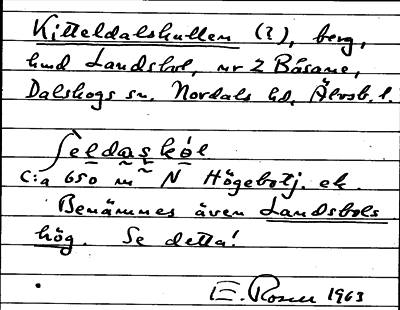 Kitteldalskullen (?), berg,
hmd Landsbol, nr 2 Båsane,
Dalskogs sn. Nordals hd, Älvsb. l.
c:a 650 m N Högebotj. ek.
Benämnes även Landsbols
hög. Se detta!
E. Rosell 1963